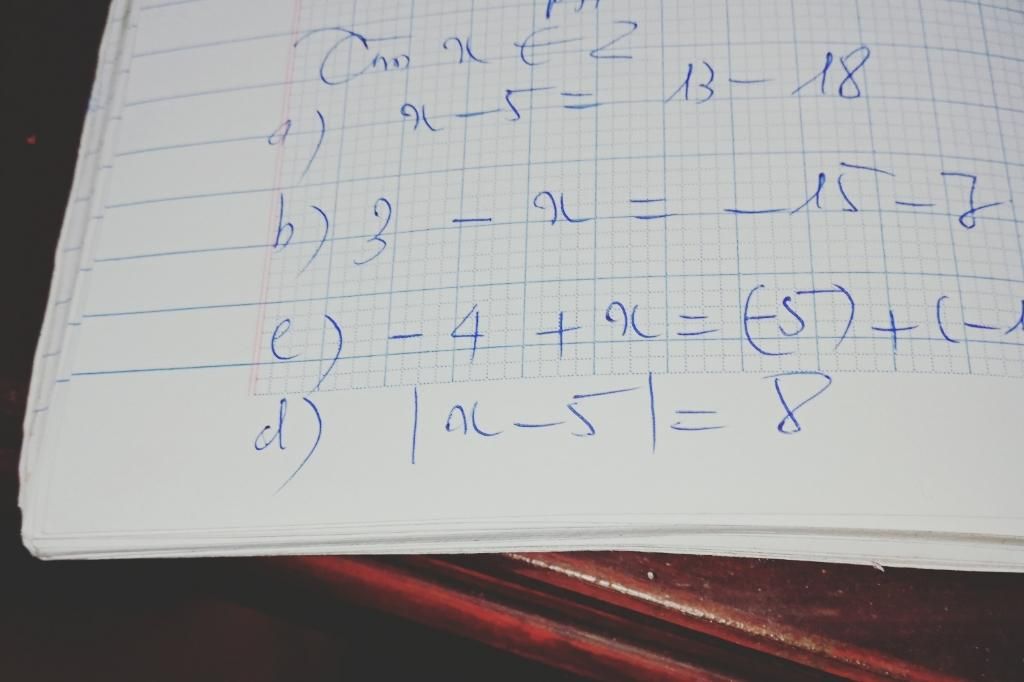 Tìm x ∈ Z
a) x - 5 = 13 - 18
b) 3 - x = -15 - 7
c) -4 + x = (-5) + (-1
d) |x - 5| = 8